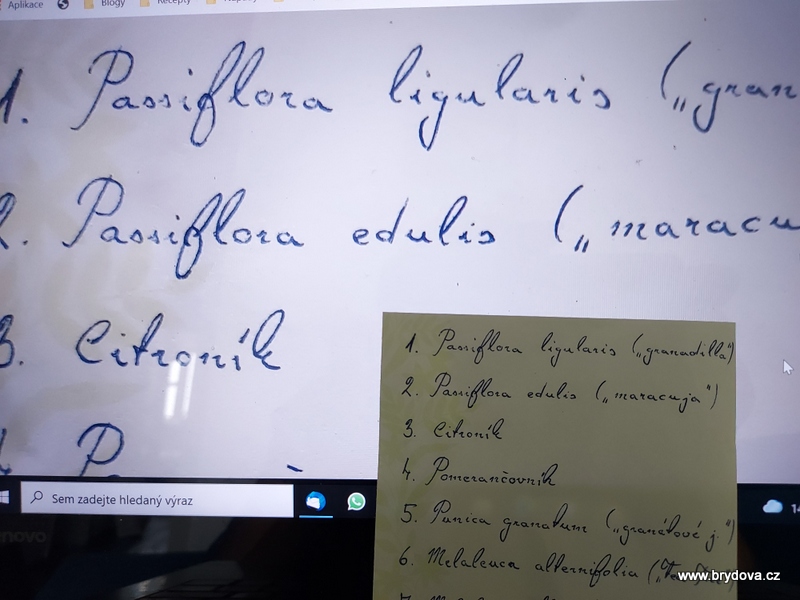 Aplikace Blogy Recepty
1. Passiflora ligularis („gran
2. Passiflora edulis („maracu
3. Citroník
Sem zadejte hledaný výraz
14
novo
1. Passiflora ligularis („granadilla“)
2. Passiflora edulis („maracuja“)
3. Citroník
4. Pomerančovník
5. Punica granatum („granátové j.“)
6. Melaleuca alternifolia
www.brydova.cz